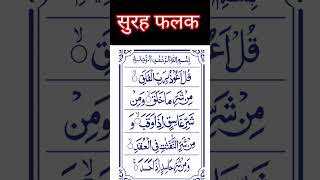 सुरह फलक
بِسْمِ اللهِ الرَّحْمٰنِ الرَّحِيْمِ
قُلْ اَعُوْذُ بِرَبِّ الْفَلَقِ ۙ
مِنْ شَرِّ مَا خَلَقَ ۙ وَمِنْ
شَرِّ غَاسِقٍ اِذَا وَقَبَ ۙ وَ
مِنْ شَرِّ النَّفّٰثٰتِ فِى الْعُقَدِ ۙ
وَمِنْ شَرِّ حَاسِدٍ اِذَا حَسَدَ